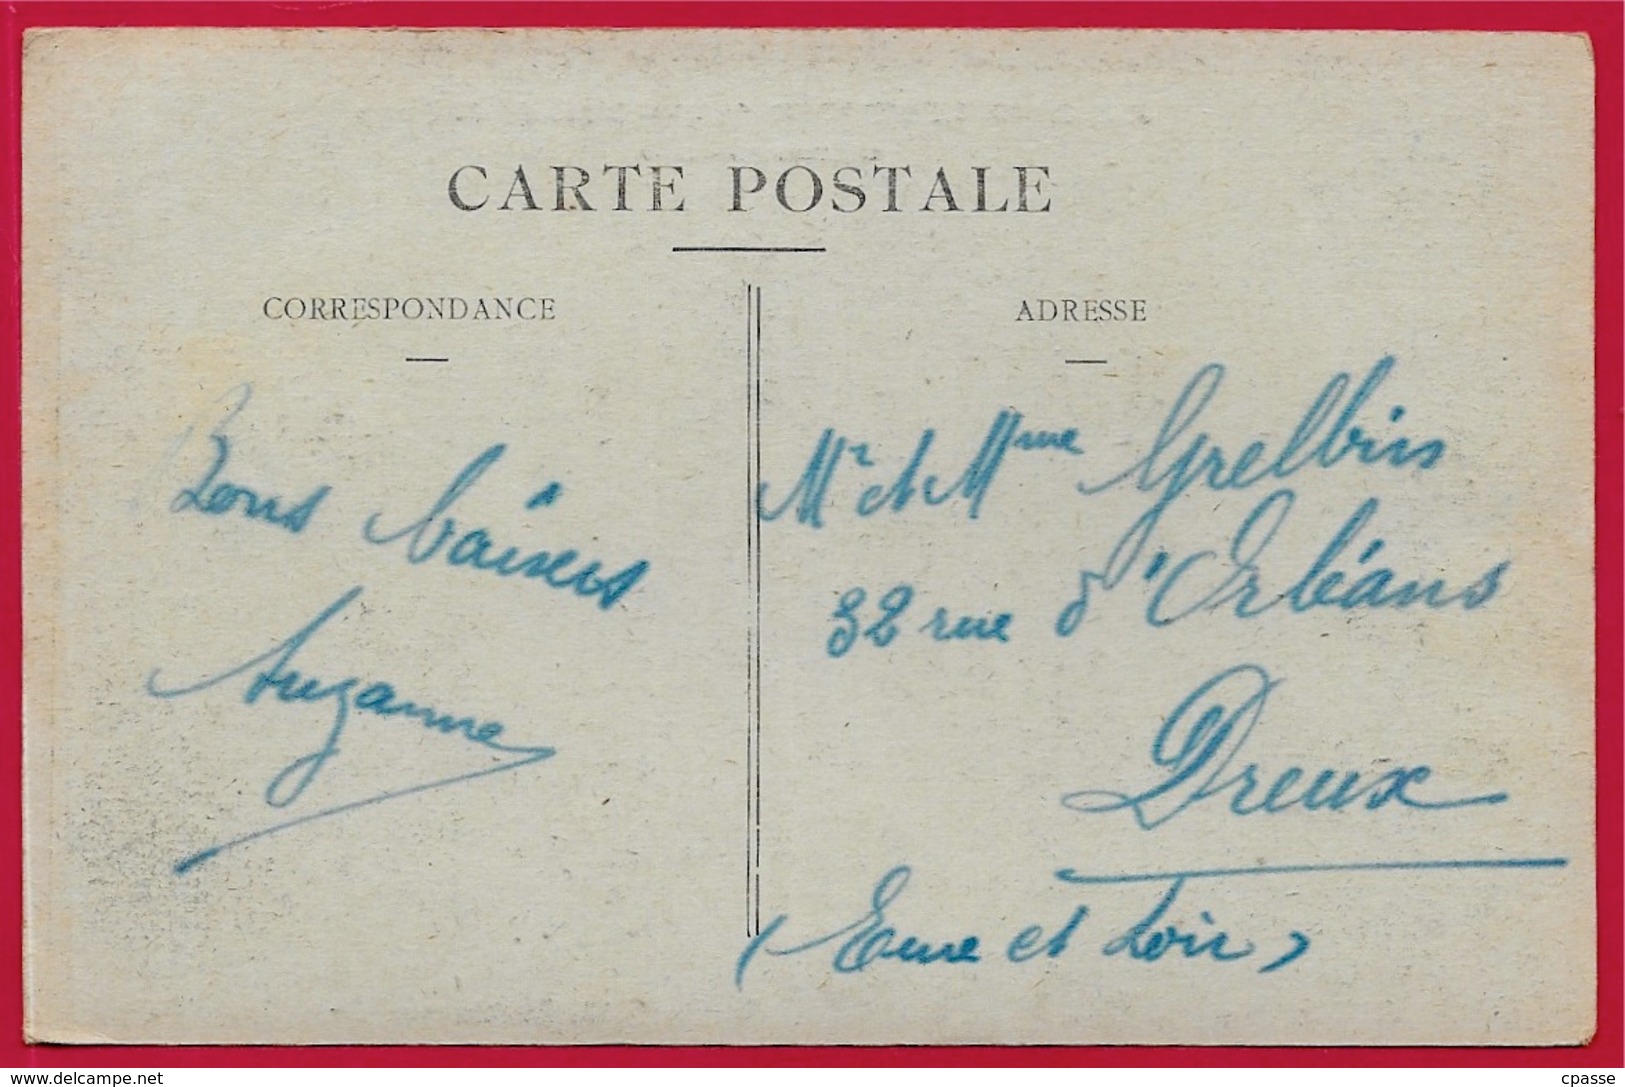 CARTE POSTALE
CORRESPONDANCE
ADRESSE
Bons baisers
Suzanne
Mr et Mme Grelbin
32 rue d'Orléans
Dreux
(Eure et Loir)
www.delcampe.net
cpasse